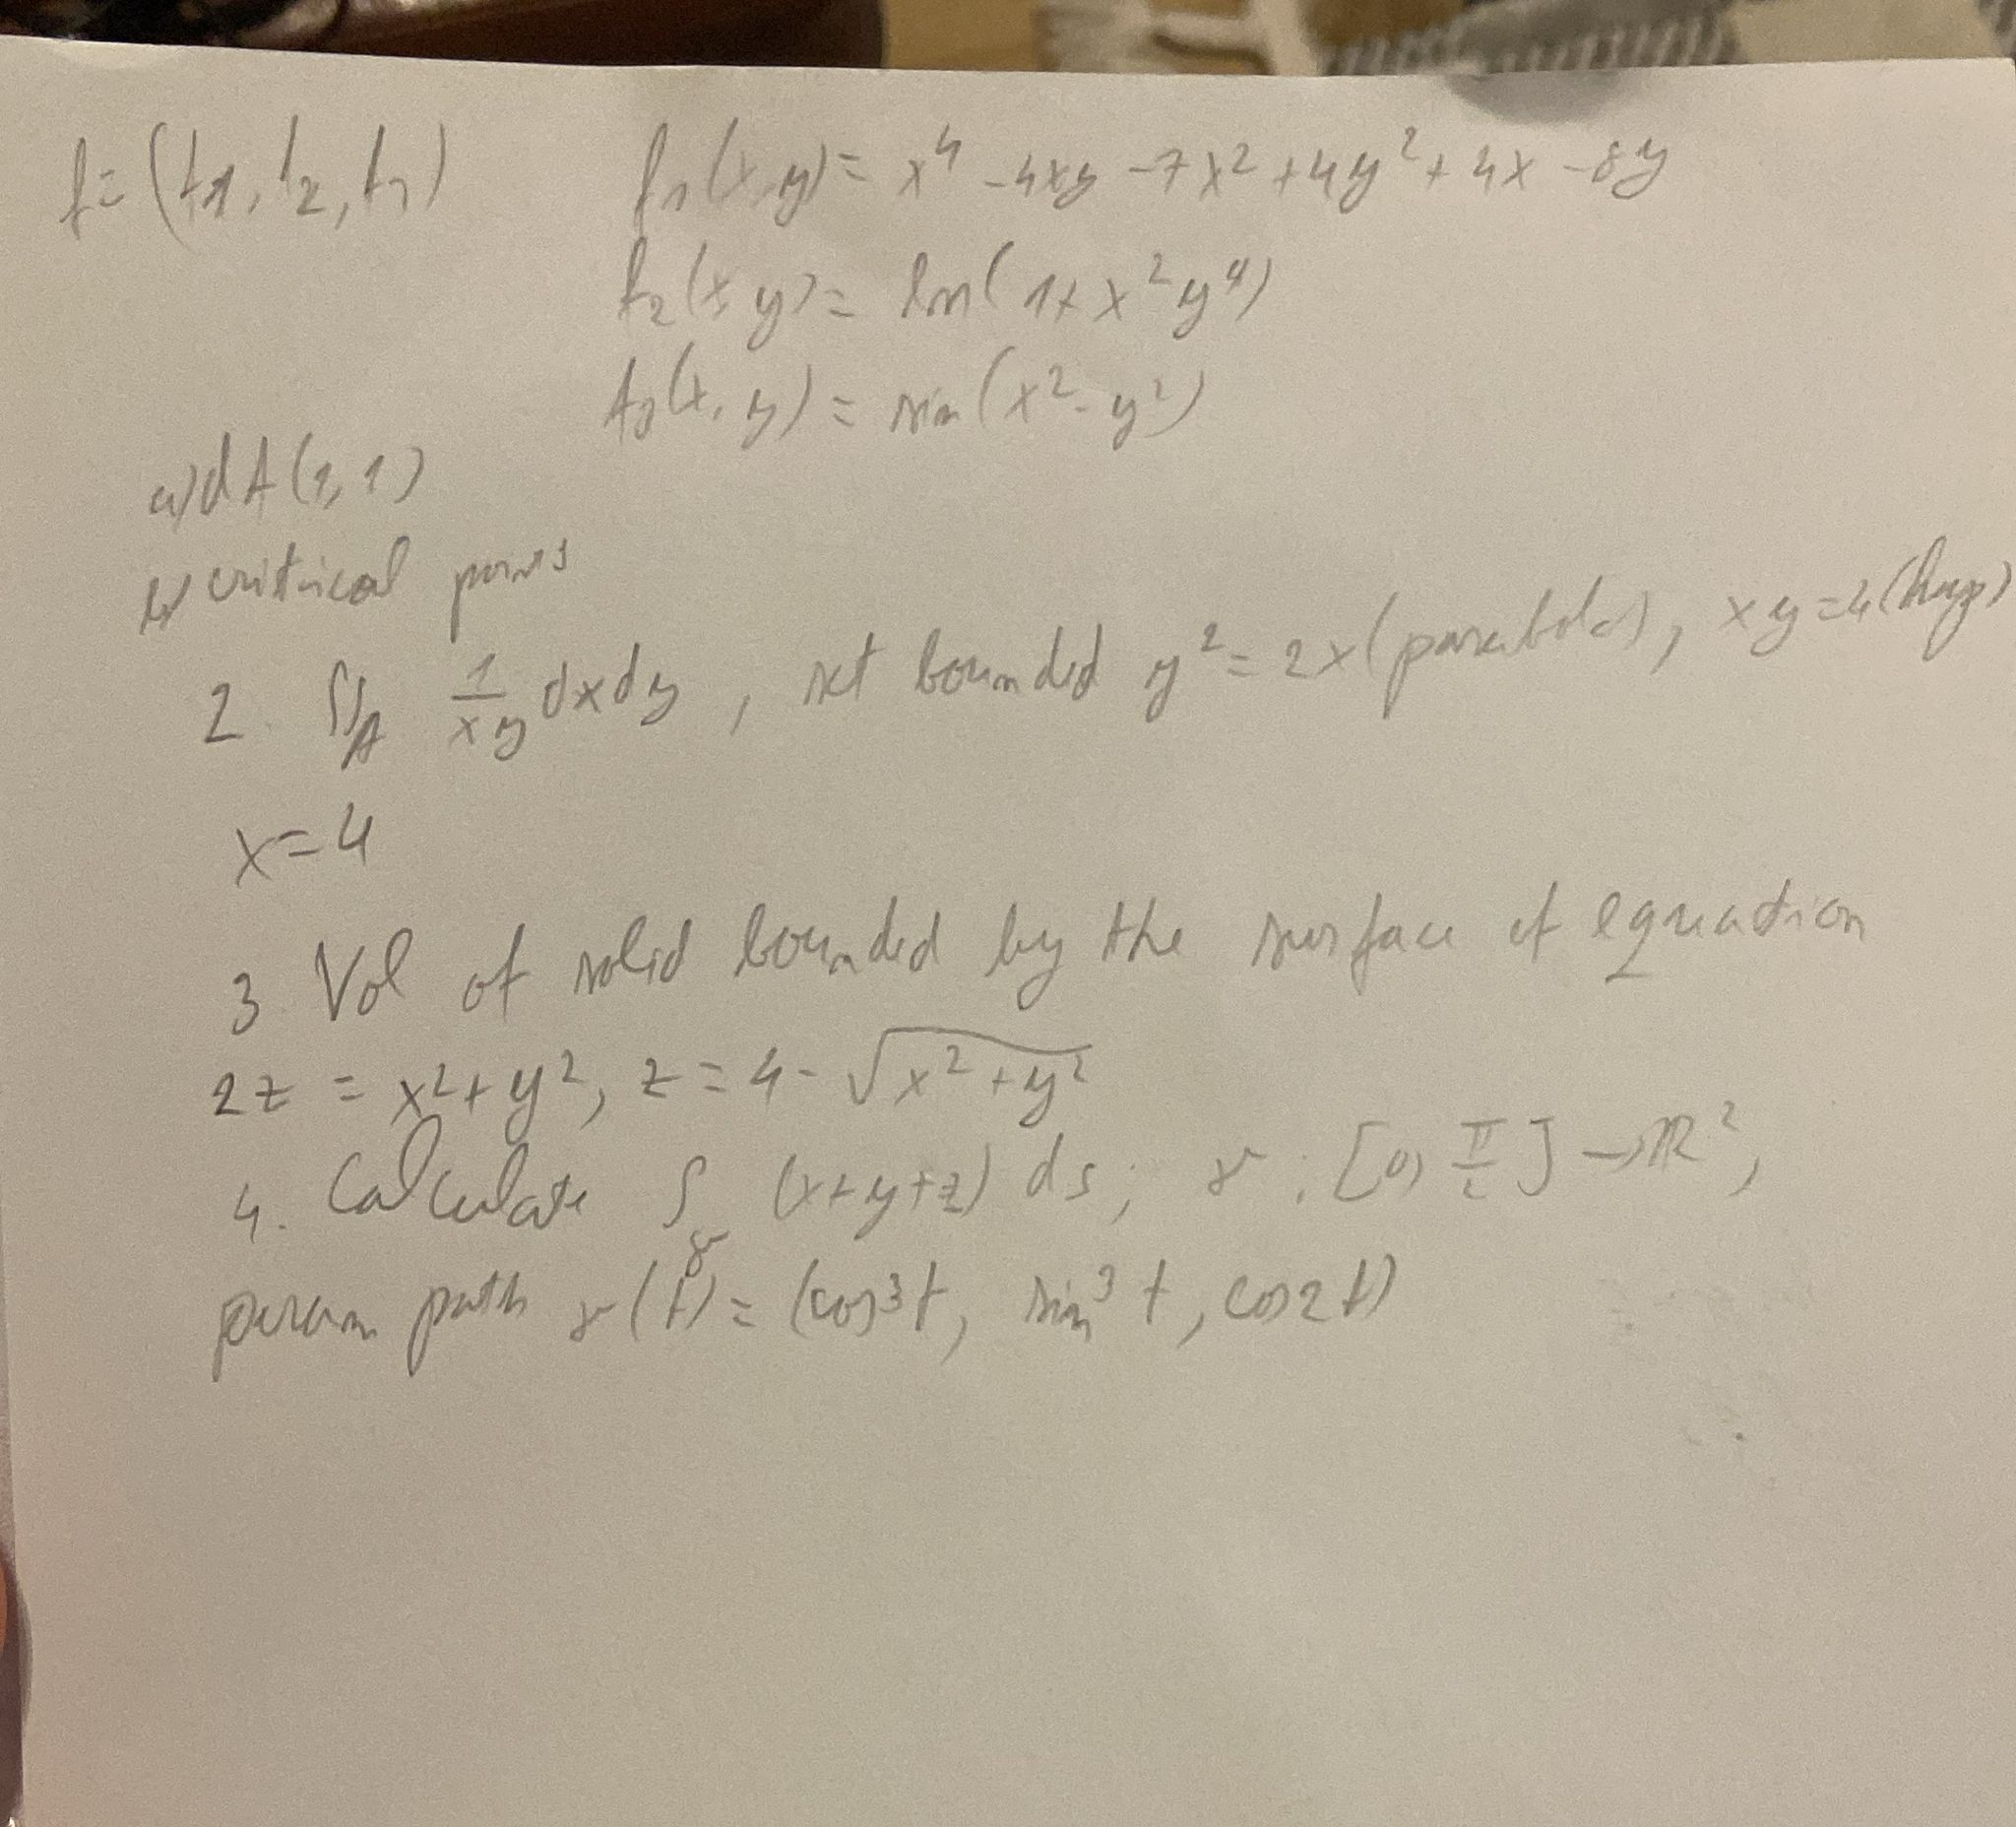 f=(f1, f2, f3) f1(x,y)= x^4 -4xy -7x^2 +4y^2+ 4x -8y
f2(x,y)= ln(1+x^2y^4)
f3(x,y) = sin(x^2-y^2)
a) df(1,1)
b) critical
2. ∬_A 1/xy dxdy, set bounded y^2=2x(parabola), xy=4(hyp)
x=4
3 Vol of solid bounded by the surface of equation
2z = x^2+y^2, z=4-√(x^2+y^2)
4. Calculate ∫_γ (x+y+z) ds; γ: [0, π/2]→ℝ^2,
param path γ(t)=(cos^3t, sin^3t, cos2t)